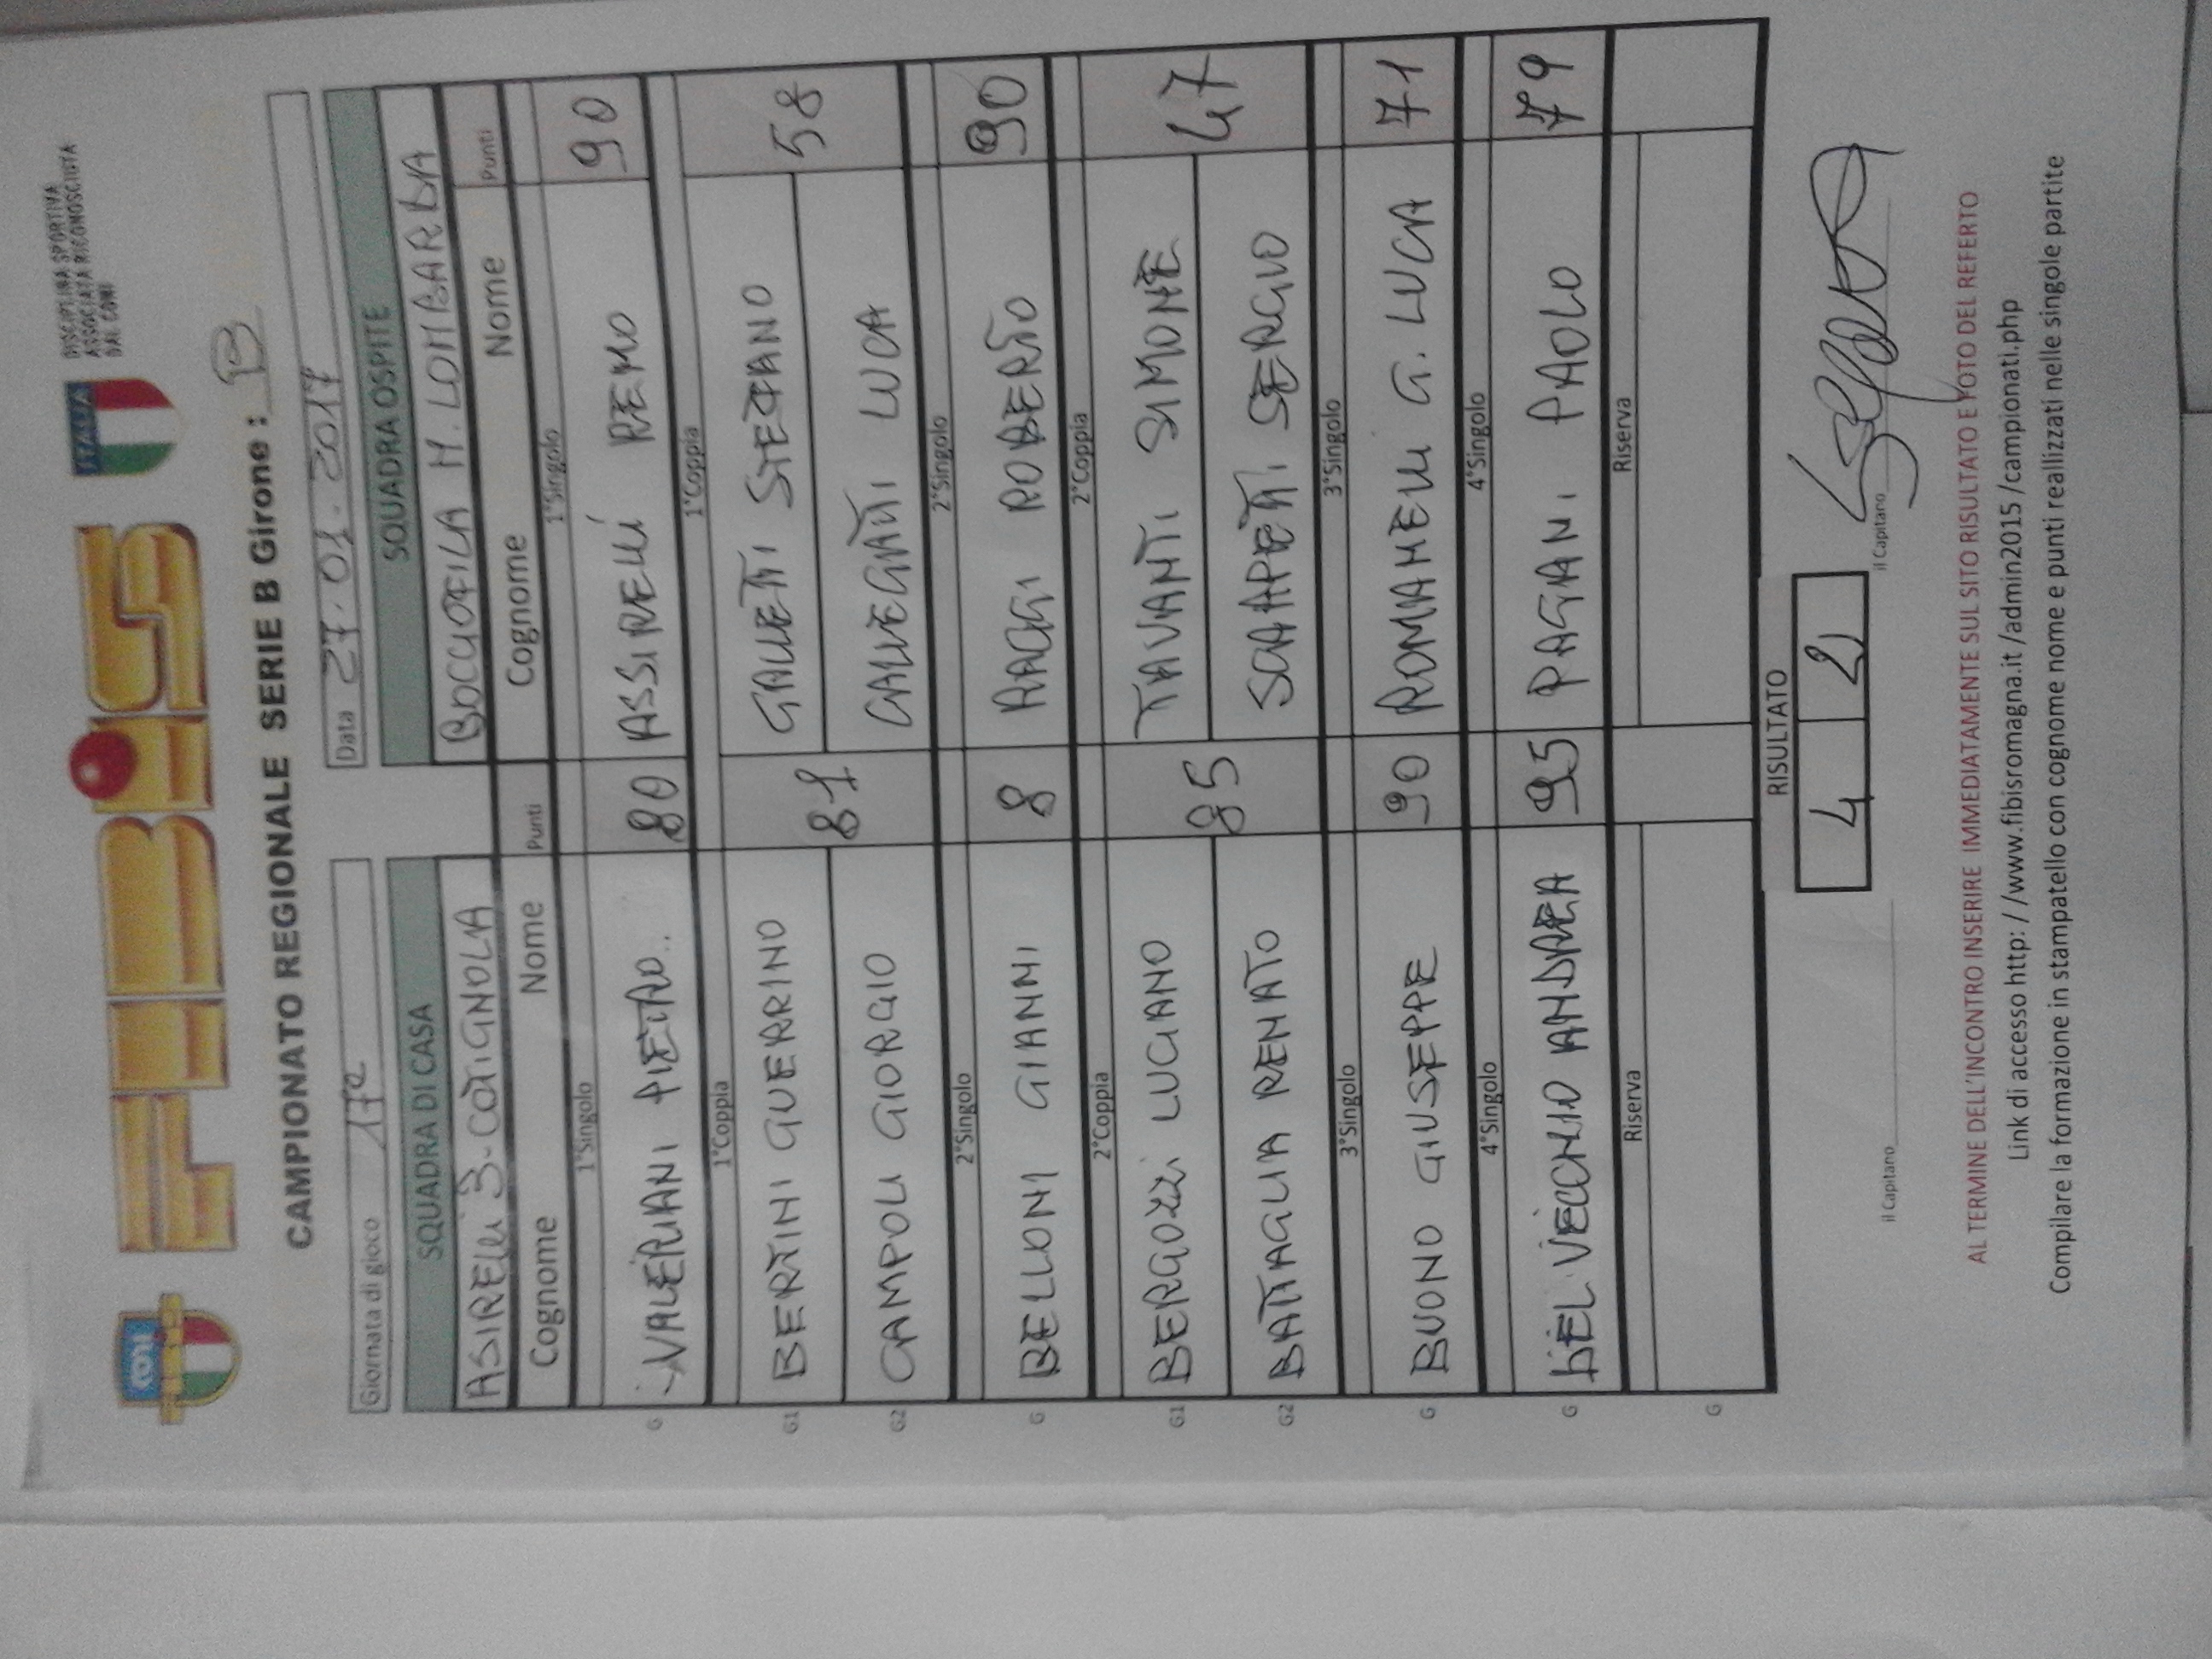 CONI
FIBiS
ITALIA
DISCIPLINA SPORTIVA
ASSOCIATA RICONOSCIUTA
DAL CONI
CAMPIONATO REGIONALE SERIE B Girone : B
Giornata di gioco 17ª Data 27.01.2017
SQUADRA DI CASA SQUADRA OSPITE
ASIRELLI 3-COTIGNOLA BOCCIOFILA M. LOMBARDA
Cognome Nome Punti Cognome Nome Punti
1°Singolo 1°Singolo
G VALERIANI PIETRO 80 ASSIRELLI REMO 90
1°Coppia 1°Coppia
G1 BERTINI GUERRINO 81 GALLETTI STEFANO 58
G2 CAMPOLI GIORGIO CALLEGATTI LUCA
2°Singolo 2°Singolo
G BELLONI GIANNI 8 RAGGI ROBERTO 90
2°Coppia 2°Coppia
G1 BERGOZZI LUCIANO 85 TAVANTI SIMONE 47
G2 BATTAGLIA RENATO SCARPETTI SERGIO
3°Singolo 3°Singolo
G BUONO GIUSEPPE 90 ROMANELLI G. LUCA 71
4°Singolo 4°Singolo
G DEL VECCHIO ANDREA 95 PAGANI PAOLO 79
Riserva Riserva
G
RISULTATO
4 2
il Capitano il Capitano
AL TERMINE DELL'INCONTRO INSERIRE IMMEDIATAMENTE SUL SITO RISULTATO E FOTO DEL REFERTO
Link di accesso http: / /www.fibisromagna.it /admin2015 /campionati.php
Compilare la formazione in stampatello con cognome nome e punti reallizzati nelle singole partite